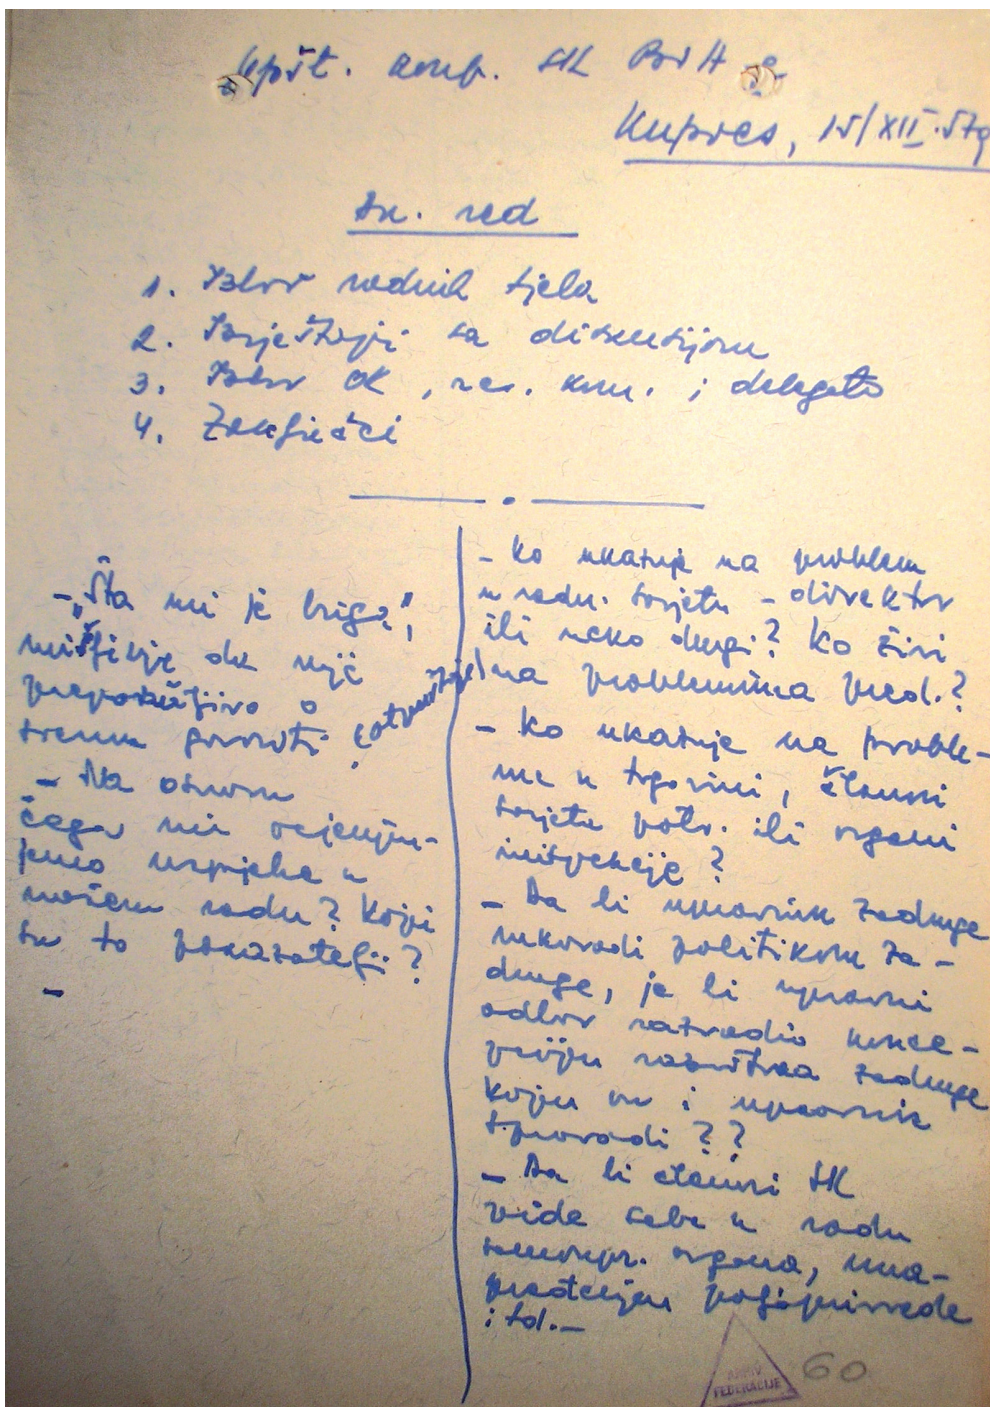 Opšt. konf. SK BiH
Kupres, 15/XII-579
Dn. red
1. Izbor radnih tjela
2. Izvještaji sa diskusijom
3. Izbor OK, rev. kom. i delegata
4. Zaključci
- „Šta mi je briga",
mišljenje da nije
preporučljivo o
svemu govoriti
- Na osnovu
čega mi ocjenju-
jemo uspjehe u
našem radu? Koji
su to pokazatelji?
-
- Ko ukazuje na problem
u radn. savjetu - direktor
ili neko drugi? Ko živi
na problemima pred.?
- Ko ukazuje na proble-
me u trgovini, članovi
savjeta potr. ili organi
inspekcije?
- Da li upravnik zadruge
rukovodi politikom za-
druge, je li upravni
odbor razradio konce-
pciju razvitka zadruge
koju on i upravnik
sprovodi??
- Da li članovi SK
vide sebe u radu
samoupr. organa, una-
pređenju poljoprivrede
i td.-
ARHIV
FEDERACIJE
60